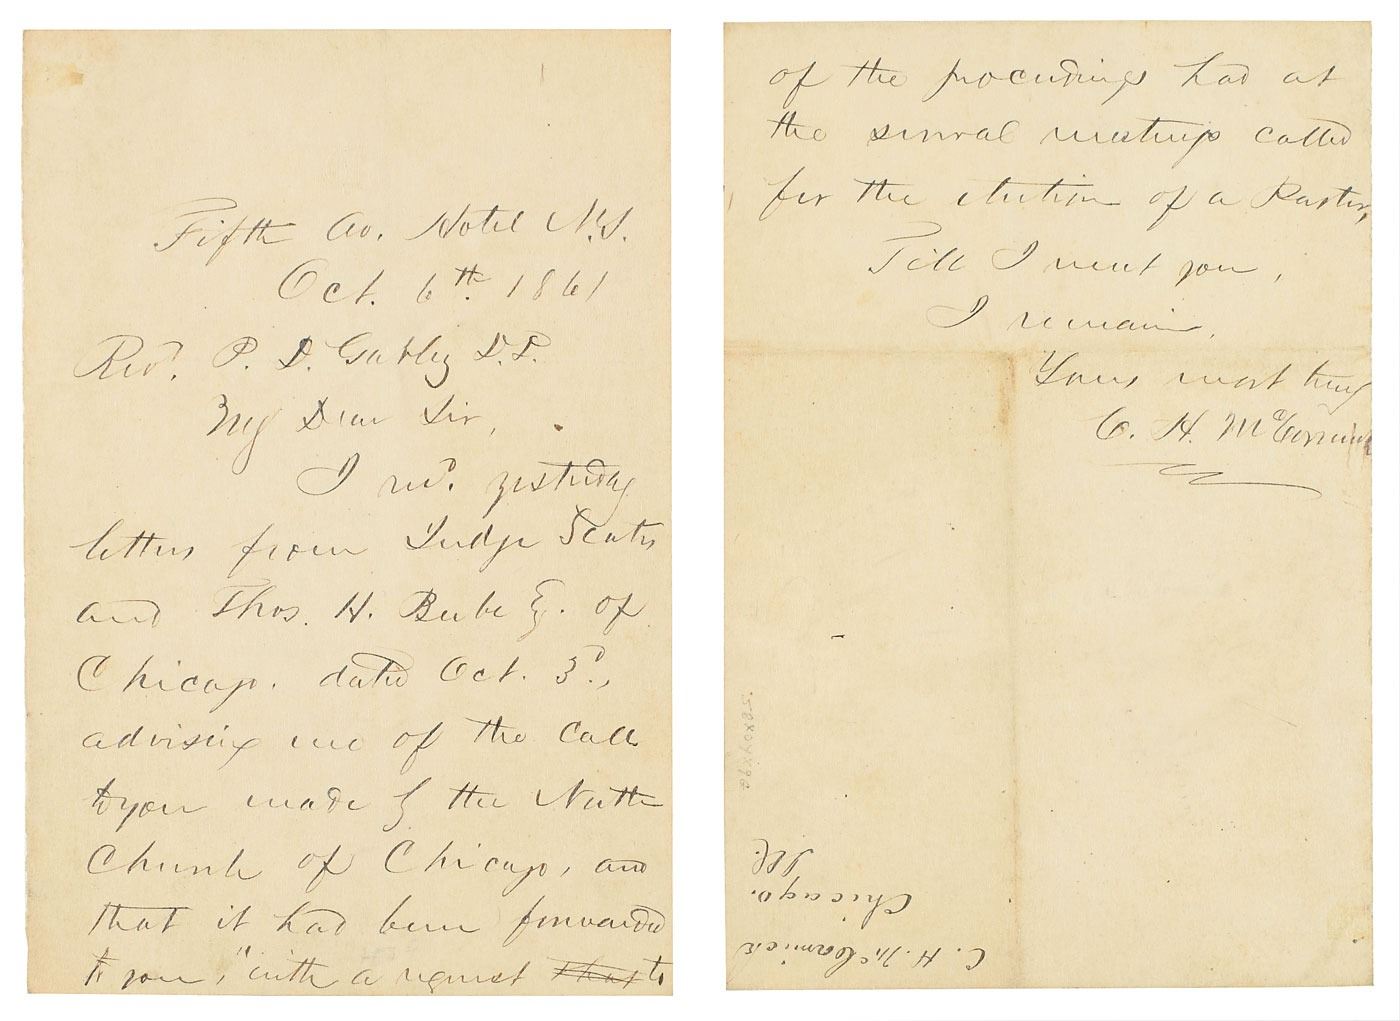 Fifth Av. Hotel N.Y.
Oct. 6th. 1861
Revd. P. D. Gurley D.D.
My Dear Sir,
I recd. yesterday
letters from Judge Scates
and Thos. H. Beebe Esq. of
Chicago. dated Oct. 3d.,
advising me of the Call
to you made by the North
Church of Chicago, and
that it had been forwarded
to you, "with a request that to
of the proceedings had at
the several meetings called
for the election of a Pastor,
Till I meet you,
I remain,
Yours most truly
C. H. McCormick
C. H. McCormick
Chicago.
Ill.